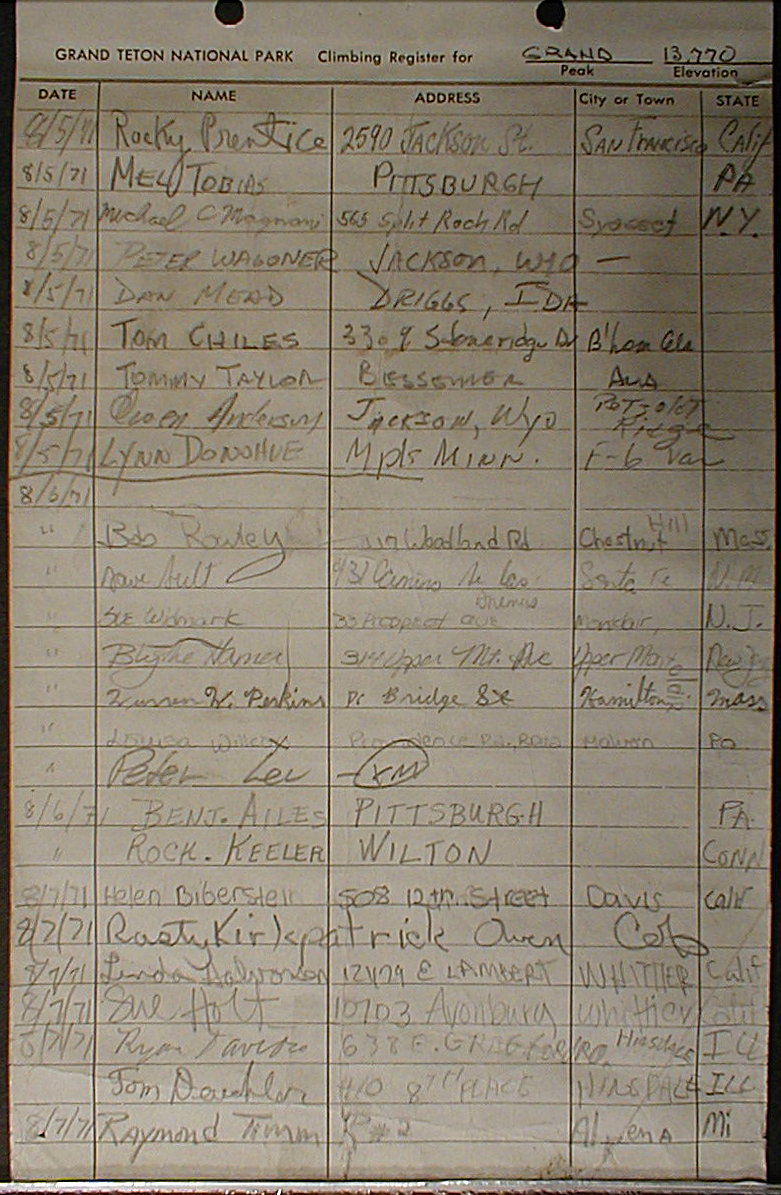 GRAND TETON NATIONAL PARK Climbing Register for GRAND 13,770
Peak Elevation
DATE NAME ADDRESS City or Town STATE
8/5/71 Rocky Prentice 2590 JACKSON St. SAN FRANCISCO Calif
8/5/71 MEL TOBIAS PITTSBURGH PA
8/5/71 Michael C Magnani 565 Split Rock Rd Syosset N.Y.
8/5/71 PETER WAGONER JACKSON, WYO —
8/5/71 DAN MEAD DRIGGS, IDA
8/5/71 TOM CHILES 3309 Dr B'ham Ala
8/5/71 TOMMY TAYLOR BESSEMER ALA
8/5/71 Owen Anderson JACKSON, WYO
8/5/71 LYNN DONOHUE Mpls MINN. F-6 Var
8/6/71
" Bob Rowley 117 Woodland Rd Chestnut Hill Mass.
" Dave Ault Camino de Las Santa Fe N.M.
" SUE Widmark 33 PROSPECT AVE Montclair, N.J.
" Blythe 314 Upper Mt. Ave Upper Mont
" W. Perkins Bridge St Hamilton Mass
" Louisa Willcox Providence Rd., Malvern Pa
" Peter Lev
8/6/71 BENJ. AILES PITTSBURGH PA.
" ROCK. KEELER WILTON CONN
8/7/71 Helen Biberstein 508 12th Street Davis Calif
8/7/71 Rusty Kirkpatrick Owen Colo
8/7/71 Linda Halvorson 12479 E LAMBERT WHITTIER Calif
8/7/71 Sue Holt 10703 Avonbury Whittier Calif
8/7/71 Ryan RD. HINSDALE ILL
Tom 410 8TH PLACE HINSDALE ILL
8/7/71 Raymond Timm R#2 Alpena Mi